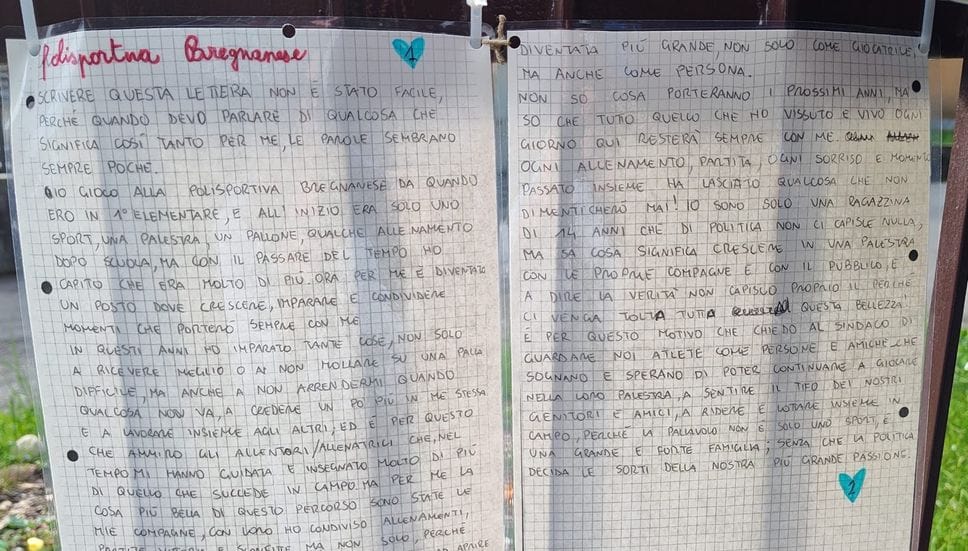 Polisportiva Bregnanese
1
SCRIVERE QUESTA LETTERA NON È STATO FACILE,
PERCHÉ QUANDO DEVO PARLARE DI QUALCOSA CHE
SIGNIFICA COSÌ TANTO PER ME, LE PAROLE SEMBRANO
SEMPRE POCHE.
IO GIOCO ALLA POLISPORTIVA BREGNANESE DA QUANDO
ERO IN 1° ELEMENTARE, E ALL'INIZIO ERA SOLO UNO
SPORT, UNA PALESTRA, UN PALLONE, QUALCHE ALLENAMENTO
DOPO SCUOLA, MA CON IL PASSARE DEL TEMPO HO
CAPITO CHE ERA MOLTO DI PIÙ. ORA PER ME È DIVENTATO
UN POSTO DOVE CRESCERE, IMPARARE E CONDIVIDERE
MOMENTI CHE PORTERÒ SEMPRE CON ME
IN QUESTI ANNI HO IMPARATO TANTE COSE, NON SOLO
A RICEVERE MEGLIO O AI NON MOLLARE SU UNA PALLA
DIFFICILE, MA ANCHE A NON ARRENDERMI QUANDO
QUALCOSA NON VA, A CREDERE UN PÒ PIÙ IN ME STESSA
E A LAVORARE INSIEME AGLI ALTRI, ED È PER QUESTO
CHE AMMIRO GLI ALLENTORI/ALLENATRICI CHE, NEL
TEMPO MI HANNO GUIDATA E INSEGNATO MOLTO DI PIÙ
DI QUELLO CHE SUCCEDE IN CAMPO. MA PER ME LA
COSA PIÙ BELLA DI QUESTO PERCORSO SONO STATE LE
MIE COMPAGNE, CON LORO HO CONDIVISO ALLENAMENTI,
PARTITE VITTORIE E SCONFITTE MA NON SOLO, PERCHÉ
DIVENTATA PIÙ GRANDE, NON SOLO COME GIOCATRICE,
MA ANCHE COME PERSONA.
NON SO COSA PORTERANNO I PROSSIMI ANNI, MA
SO CHE TUTTO QUELLO CHE HO VISSUTO E VIVO OGNI
GIORNO QUI RESTERÀ SEMPRE CON ME.
OGNI ALLENAMENTO, PARTITA, OGNI SORRISO E MOMENTO
PASSATO INSIEME HA LASCIATO QUALCOSA CHE NON
DIMENTICHERÒ MAI! IO SONO SOLO UNA RAGAZZINA
DI 14 ANNI CHE DI POLITICA NON CI CAPISCE NULLA,
MA SA COSA SIGNIFICA CRESCERE IN UNA PALESTRA
CON LE PROPRIE COMPAGNE E CON IL PUBBLICO, E
A DIRE LA VERITÀ NON CAPISCO PROPRIO IL PERCHÉ
CI VENGA TOLTA TUTTA QUESTA BELLEZZA.
È PER QUESTO MOTIVO CHE CHIEDO AL SINDACO DI
GUARDARE NOI ATLETE COME PERSONE E AMICHE CHE
SOGNANO E SPERANO DI POTER CONTINUARE A GIOCARE
NELLA LORO PALESTRA, A SENTIRE IL TIFO DEI NOSTRI
GENITORI E AMICI, A RIDERE E LOTTARE INSIEME IN
CAMPO, PERCHÉ LA PALLAVOLO NON È SOLO UNO SPORT, È
UNA GRANDE E FORTE FAMIGLIA; SENZA CHE LA POLITICA
DECIDA LE SORTI DELLA NOSTRA PIÙ GRANDE PASSIONE.
2